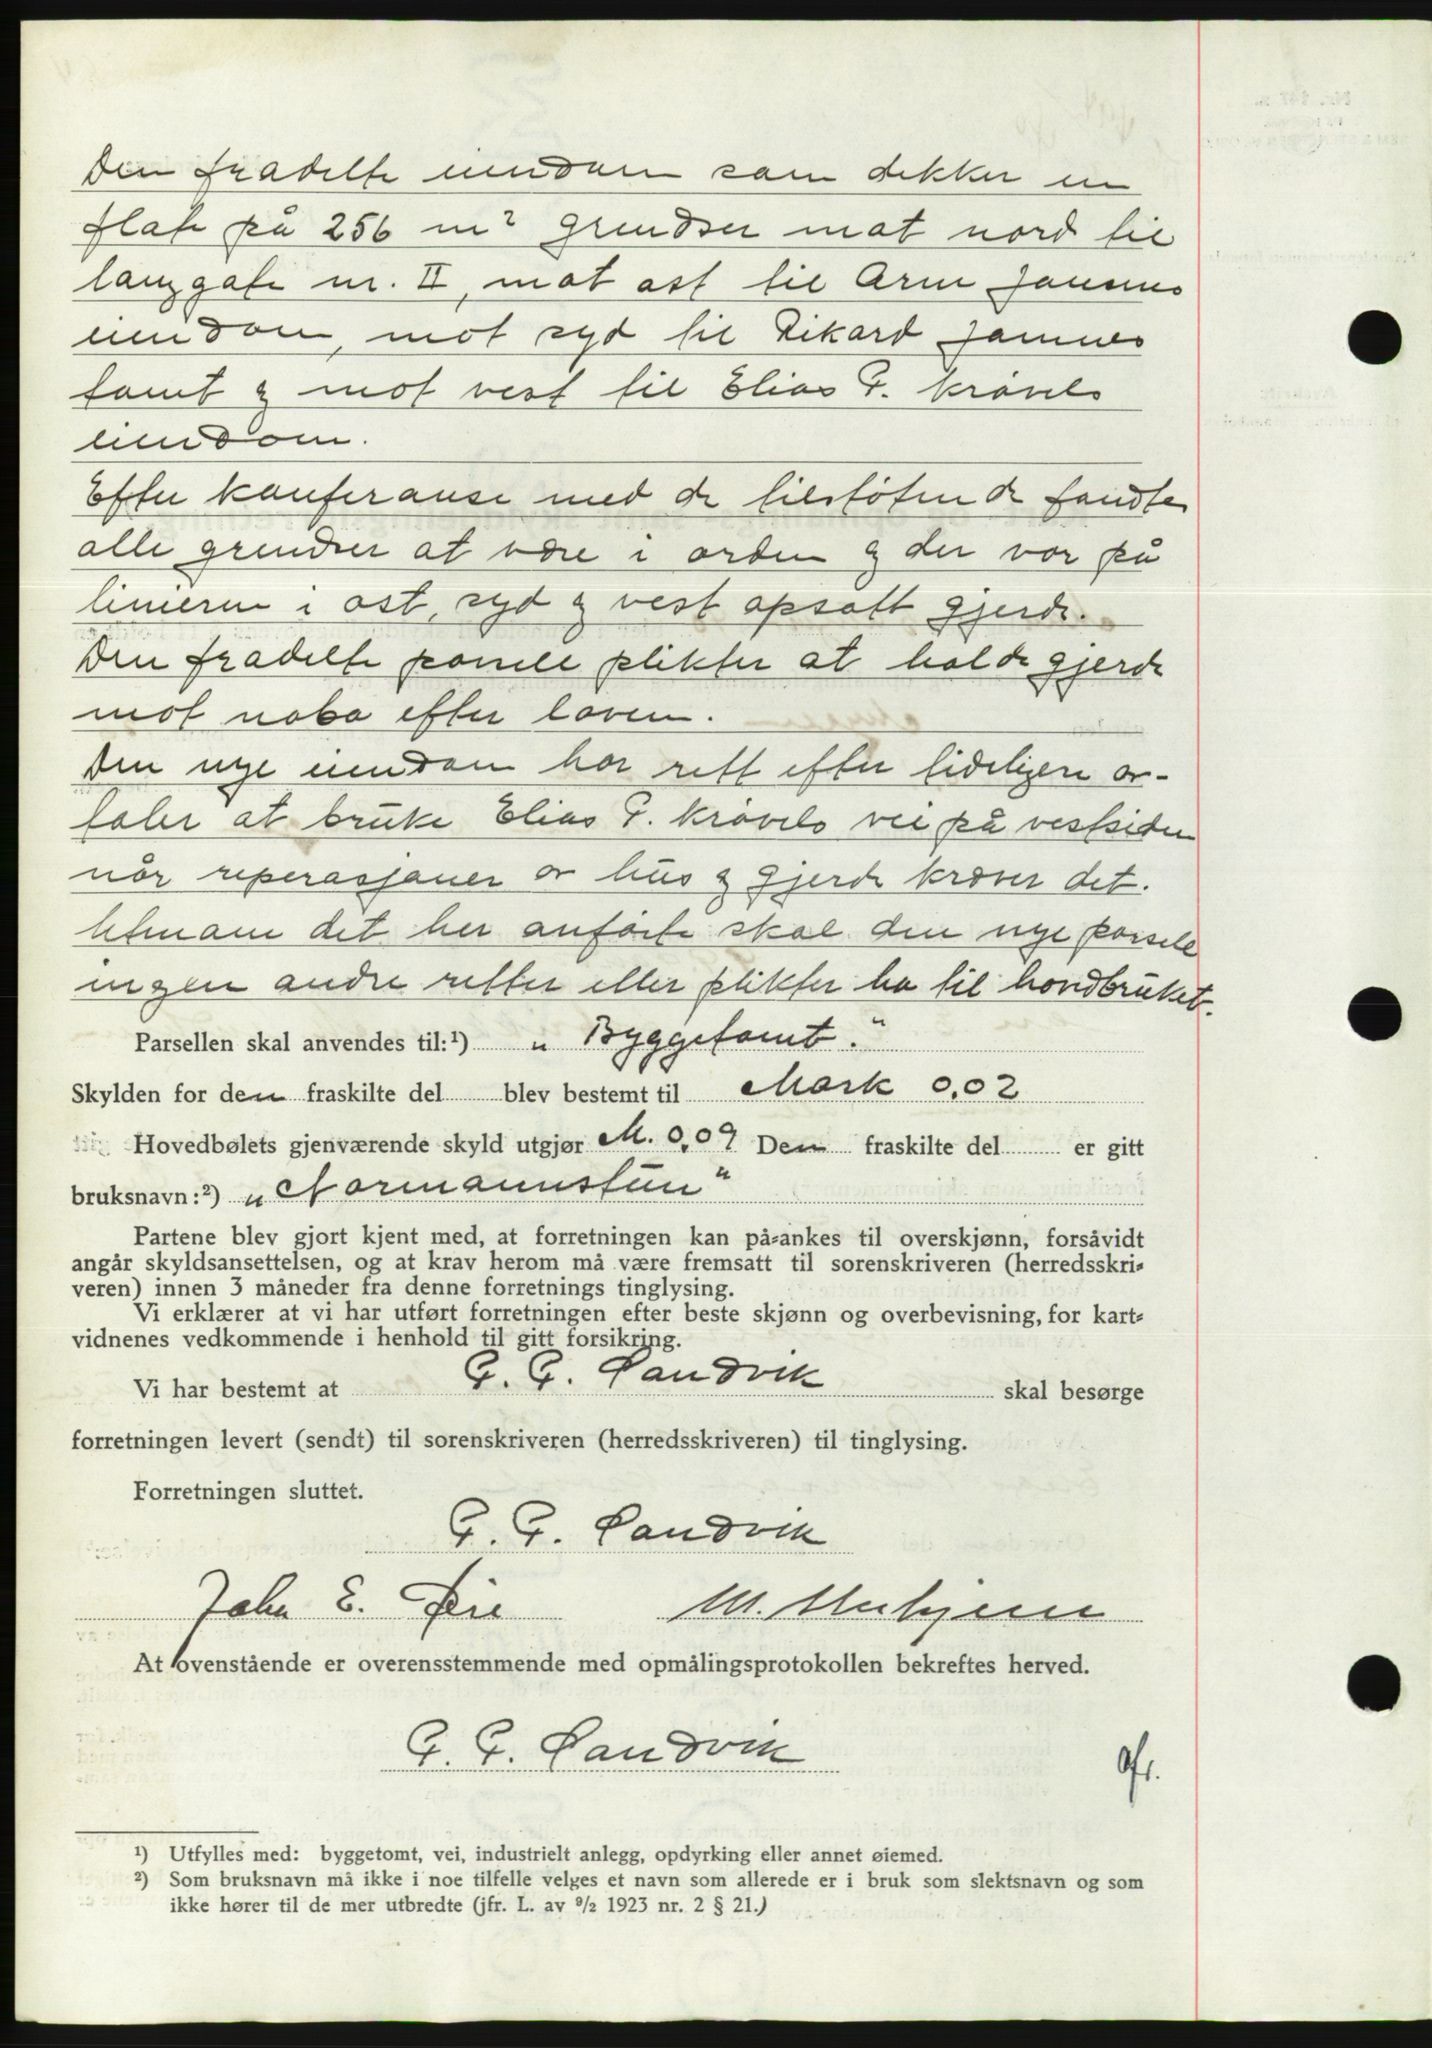 Den fradelte eiendom som dekker en
flate på 256 m² grendser mot nord til
langgate nr. II, mot ost til Arne Jamnes
eiendom, mot syd til Rikard Jamnes
tomt og mot vest til Elias P. Krøvels
eiendom.
Efter konferanse med de tilstøtende fandtes
alle grendser at være i orden og der var på
linieren i ost, syd og vest opsatt gjerde.
Den fradelte parsell plikter at holde gjerde
mot nabo efter loven.
Den nye eiendom har rett efter tideligere av-
taler at bruke Elias P. Krøvels vei på vestsiden
når reperasjoner av hus og gjerde kræver det.
Utenom det her anførte skal den nye parsell
ingen andre retter eller plikter ha til hovdbruket.
Parsellen skal anvendes til:¹) „Byggetomt."
Skylden for den fraskilte del blev bestemt til Mark 0,02
Hovedbølets gjenværende skyld utgjør M. 0,09 Den fraskilte del er gitt
bruksnavn:²) „Normannstun"
Partene blev gjort kjent med, at forretningen kan på-ankes til overskjønn, forsåvidt
angår skyldsansettelsen, og at krav herom må være fremsatt til sorenskriveren (herredsskri-
veren) innen 3 måneder fra denne forretnings tinglysing.
Vi erklærer at vi har utført forretningen efter beste skjønn og overbevisning, for kart-
vidnenes vedkommende i henhold til gitt forsikring.
Vi har bestemt at P. P. Sandvik skal besørge
forretningen levert (sendt) til sorenskriveren (herredsskriveren) til tinglysing.
Forretningen sluttet.
P. P. Sandvik
John E. Øie M.
At ovenstående er overensstemmende med opmålingsprotokollen bekreftes herved.
P. P. Sandvik
¹) Utfylles med: byggetomt, vei, industrielt anlegg, opdyrking eller annet øiemed.
²) Som bruksnavn må ikke i noe tilfelle velges et navn som allerede er i bruk som slektsnavn og som
ikke hører til de mer utbredte (jfr. L. av ⁹/₂ 1923 nr. 2 § 21.)